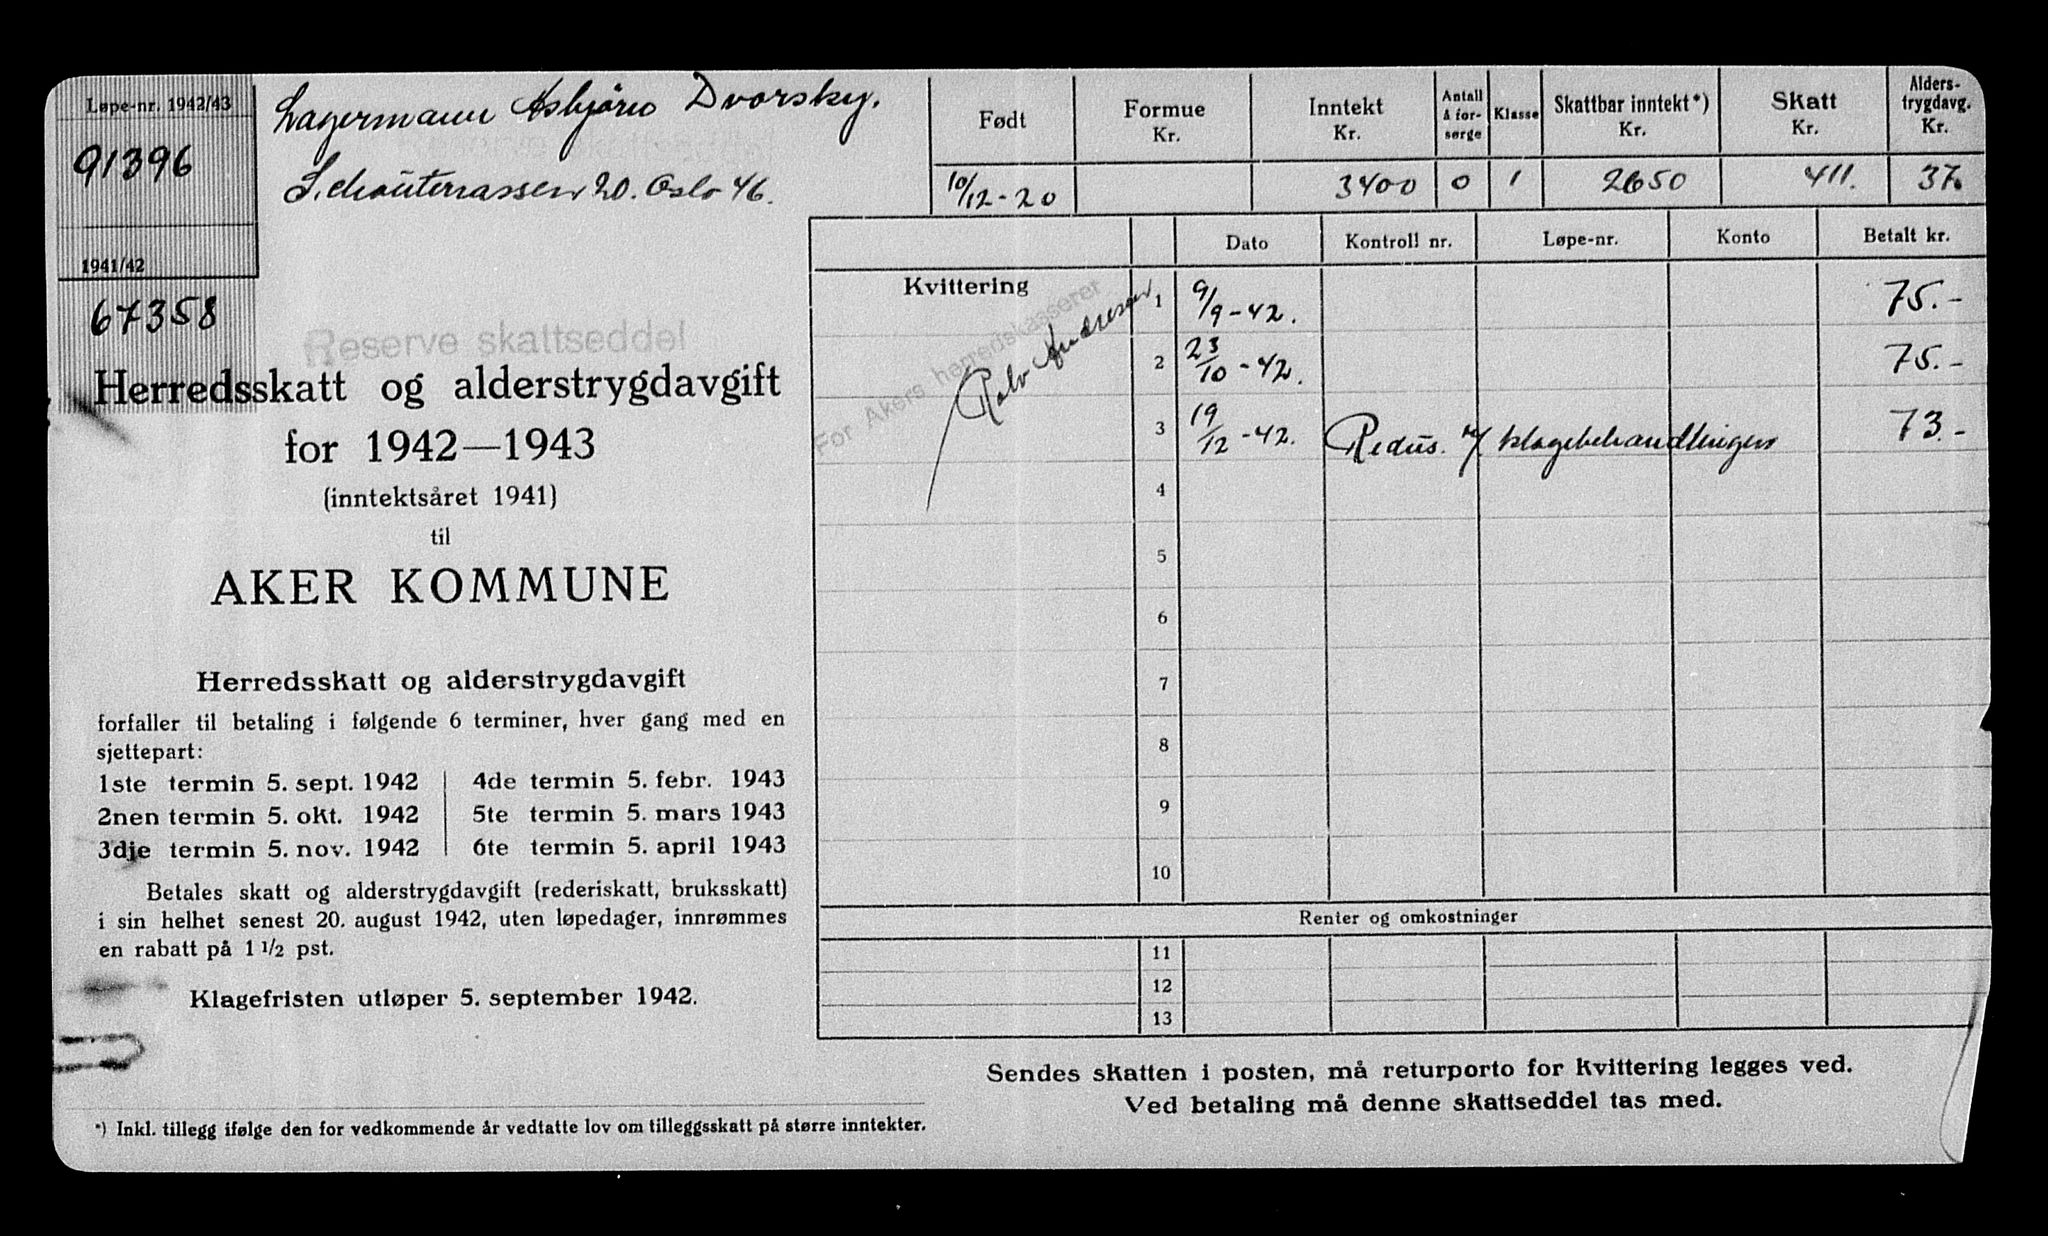 Løpe-nr. 1942/43
91396
1941/42
67358
Lagermann Asbjørn Dvorsky.
Schouterrassen 20. Oslo 46.
Reserve skattseddel
Reserve skattseddel
Herredsskatt og alderstrygdavgift
for 1942—1943
(inntektsåret 1941)
til
AKER KOMMUNE
Herredsskatt og alderstrygdavgift
forfaller til betaling i følgende 6 terminer, hver gang med en
sjettepart:
1ste termin 5. sept. 1942 | 4de termin 5. febr. 1943
2nen termin 5. okt. 1942 | 5te termin 5. mars 1943
3dje termin 5. nov. 1942 | 6te termin 5. april 1943
Betales skatt og alderstrygdavgift (rederiskatt, bruksskatt)
i sin helhet senest 20. august 1942, uten løpedager, innrømmes
en rabatt på 1 1/2 pst.
Klagefristen utløper 5. september 1942.
*) Inkl. tillegg ifølge den for vedkommende år vedtatte lov om tilleggsskatt på større inntekter.
Født | Formue Kr. | Inntekt Kr. | Antall å forsørge | Klasse | Skattbar inntekt*) Kr. | Skatt Kr. | Alderstrygdavg. Kr.
10/12-20 | | 3400 | 0 | 1 | 2650 | 411. | 37.
Kvittering | Dato | Kontroll nr. | Løpe-nr. | Konto | Betalt kr.
For Akers herredskasserer
Rolv Andresen
1 9/9-42. 75.-
2 23/10-42. 75.-
3 19/12-42. Redus. v/ klagebehandlingen 73.-
4
5
6
7
8
9
10
Renter og omkostninger
11
12
13
Sendes skatten i posten, må returporto for kvittering legges ved.
Ved betaling må denne skattseddel tas med.